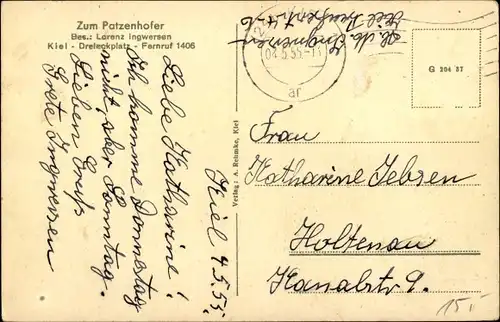 Zum Patzenhofer
Bes.: Lorenz Ingwersen
Kiel - Dreieckplatz - Fernruf 1406
Kiel 4.5.55.
Liebe Katharine!
Ich komme Donnerstag
nicht, aber Sonntag.
Lieben Gruß
Grete Ingwersen
Verlag: A. Rehmke, Kiel
04.5.55.-1
G 204 37
Frau
Katharine Jebsen
Holtenau
Kanalstr 9.
15,-